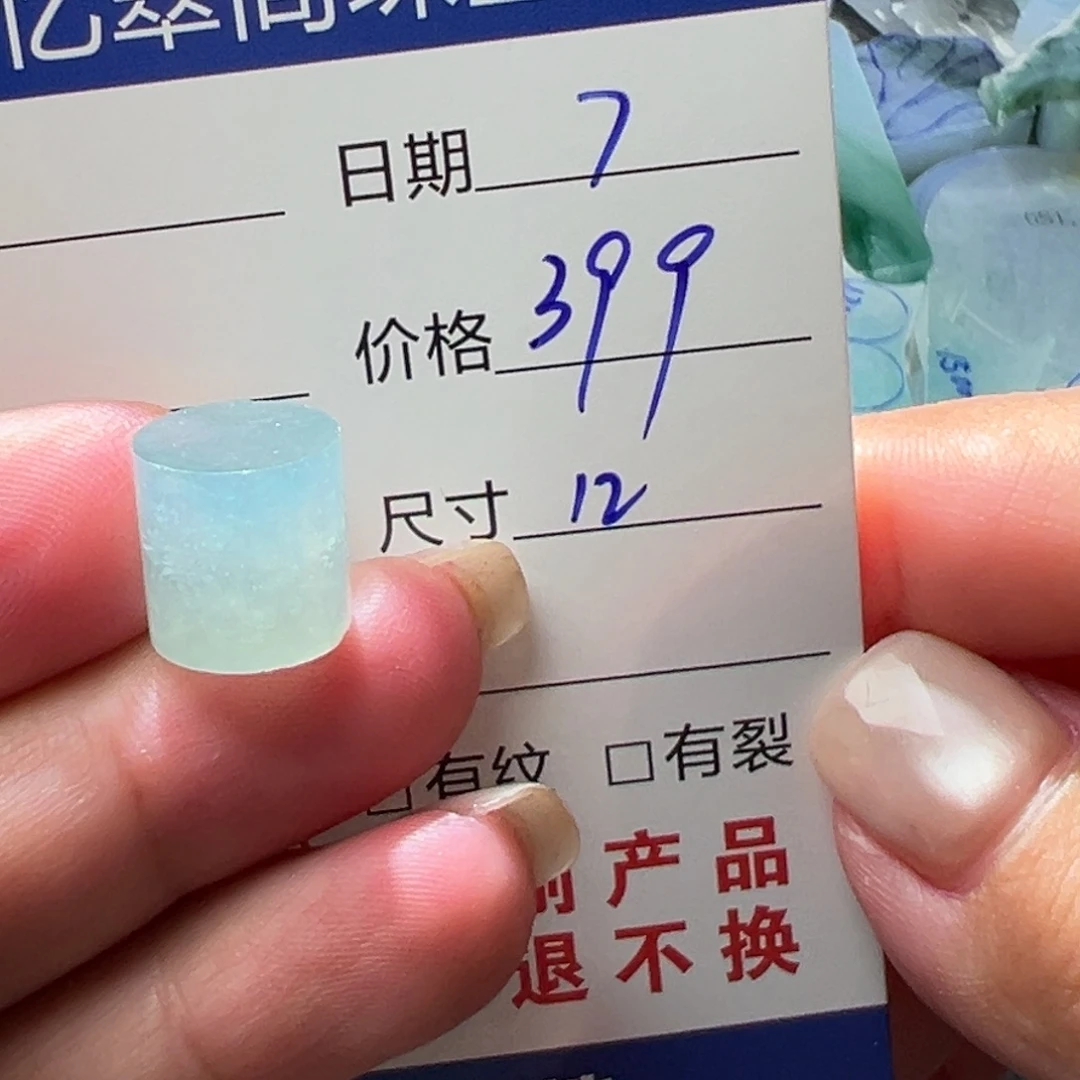 亿翠
日期 7
价格 399
尺寸 12
□有纹 □有裂
产品
退不换